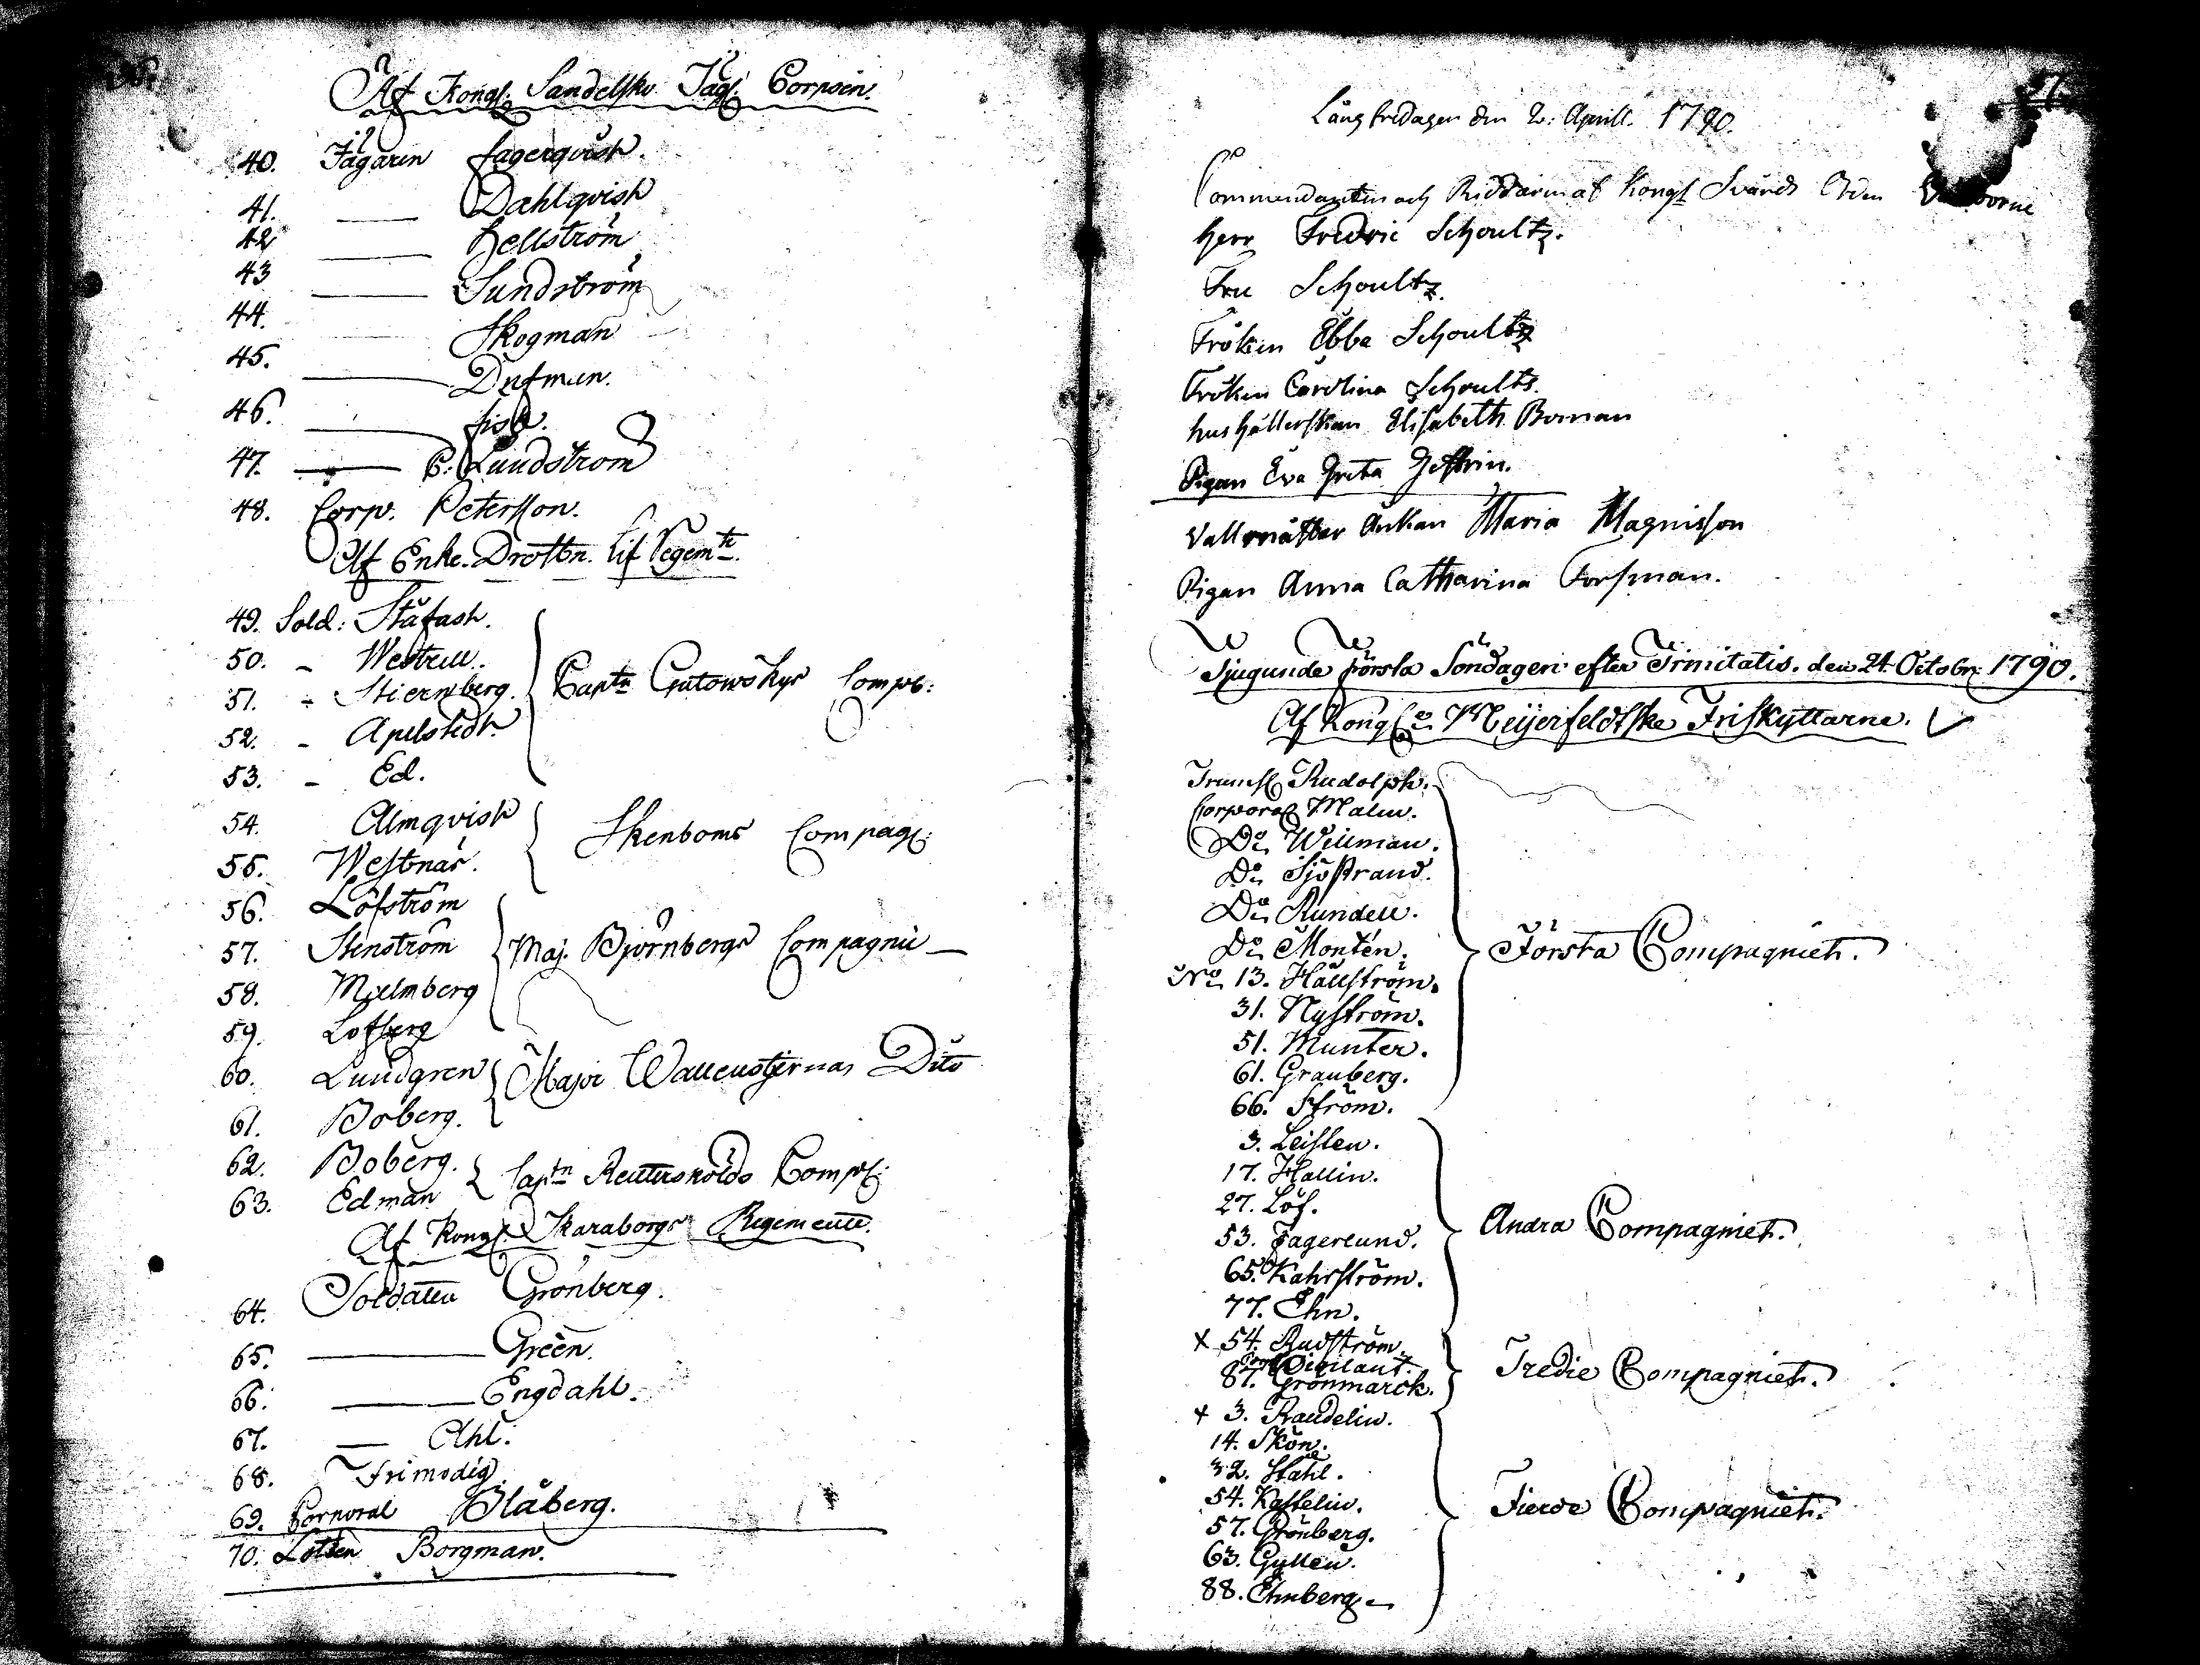 Af Kongl. Sandelske Jäg. Corpsen.
40. Jägaren Fagerqvist.
41. — Dahlqvist
42 — Hellström
43 — Sundström
44. Skogman
45. — Dufman.
46. — Fisk.
47. — C. Lundström
48. Corp. Petersson.
Af Enke-Drottn. Lif Regemte.
49. Sold: Ståfast.
50. - Westrell.
51. - Stiernberg. Captn Gutowskys Comp:
52. - Apelstedt.
53. - Ed.
54. Almqvist
Skenboms Compag:
55. Westnär.
56. Löfström
57. Stenström Maj. Björnbergs Compagnie —
58. Malmberg
59. Lofberg
60. Lundgren Major Wallenstjernas Dito
61. Boberg.
62. Boberg. Captn Reutterskölds Comp:
63. Edman
Af Kongl. Skaraborgs Regemente.
64. Soldaten Grönberg.
65. — Green.
66. — Engdahl.
67. — Ahl.
68. Frimodig.
69. Corporal Blåberg.
70. Lotsen Borgman.
57.
Långfredagen den 2. Aprill. 1790.
Commendanten och Riddaren af Kongl Svärds Orden
Herr Fredric Schoultz.
Fru Schoultz.
Fröken Ebba Schoultz
Fröken Carolina Schoults.
hushållerskan Elisabeth Boman
Pigan Eva Greta
Vallmästar Änkan Maria Magnisson
Pigan Anna Catharina Forsman.
Tjugunde första Söndagen efter Trinitatis. den 24 Octobr: 1790.
Af Kongl. Meijerfeldtske Friskyttarne.
Trumsl Rudolph.
Corporal Malm.
Do Willman.
Do Sjöstrand.
Do Rundell.
Do Montén. Första Compagniet.
No 13. Hällström.
31. Nyström.
51. Munter.
61. Granberg.
66. Ström.
3. Leislen.
17. Hallin.
27. Löf.
53. Fagerlund. Andra Compagniet.
65. Kahrström.
77. Ehn.
x 54. Rudström.
Corpl Vigilant. Tredie Compagniet.
87. Grönmarck.
x 3. Randelin.
14. Skön.
32. Stahl.
54. Kasselin. Fierde Compagniet.
57. Grönberg.
63. Gyllen.
88. Ehnberg.